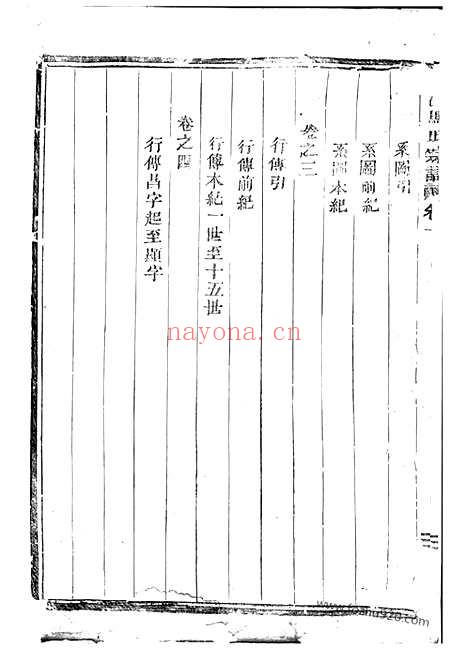 系圖引
系圖前紀
系圖本紀
卷之三
行傳引
行傳前紀
行傳本紀一世至十五世
卷之四
行傳昌字起至顯字
nayona.cn